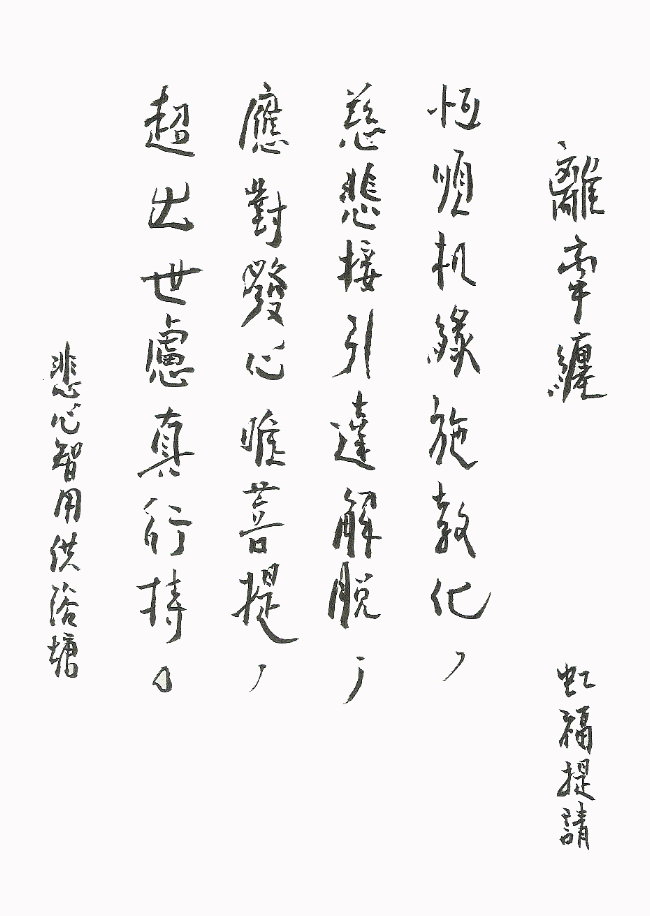 離牽纏
虹福提請
恆順机緣施教化，
慈悲接引達解脫；
應對發心唯菩提，
超出世慮真行持。
悲心智用供浴塘